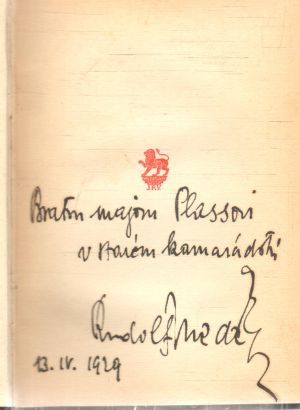 Bratru majoru Plassovi
v starém kamarádství
Rudolf Medek
13. IV. 1929